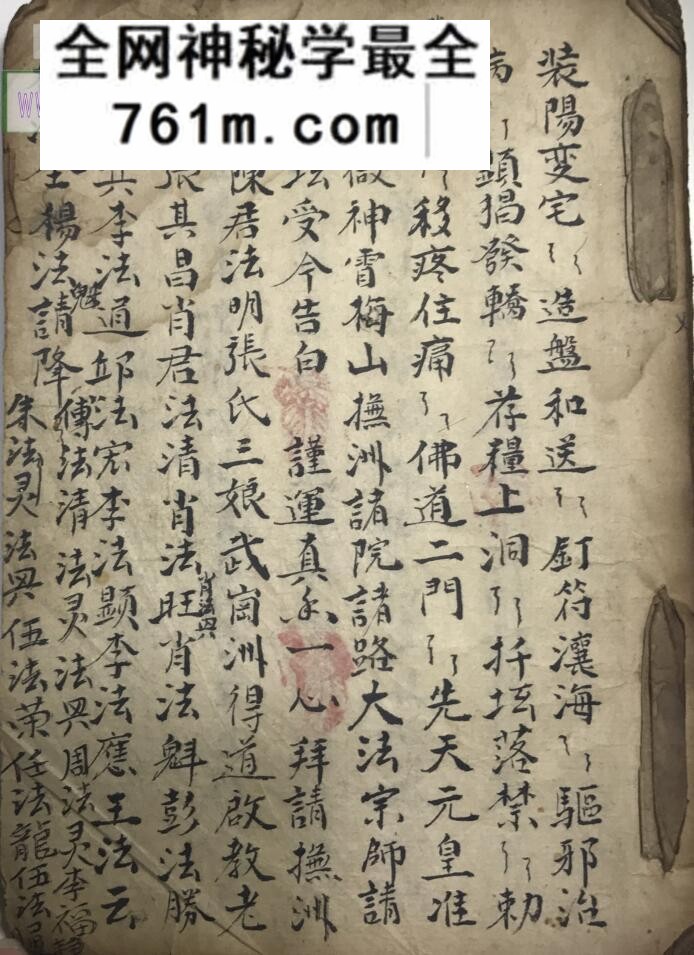 全网神秘学最全
761m.com
装陽変宅〻造盤和送〻釘符瀼海〻驅邪治
病〻顛猖發轎〻荐糧上洞〻扦坛落禁〻勅
〻移疼住痛〻佛道二門〻先天元皇准
神霄梅山撫洲諸院諸路大法宗師請
坛受今告白 謹運真香一心拜請撫洲
陳君法明張氏三娘武崗洲得道啟教老
張其昌肖君法清肖法旺肖法魁彭法勝
肖法興
其李法道邱法宏李法顕李法應王法云
魁
楊法請降傅法清法灵法興周法灵李福
朱法灵法興伍法荣任法龍伍法